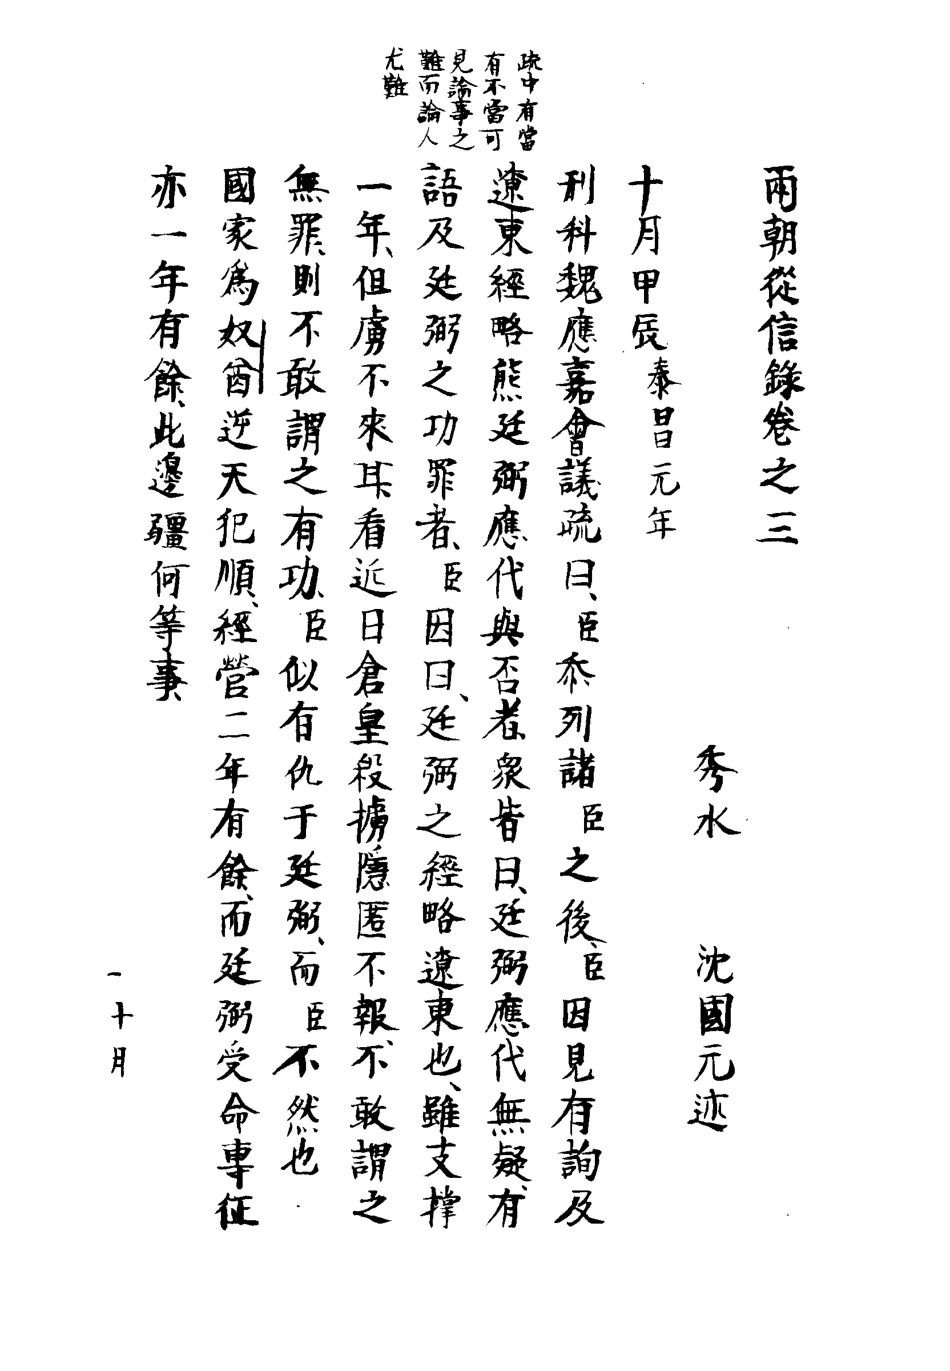 兩朝從信錄卷之三
秀水 沈國元述
十月甲辰泰昌元年
疏中有當
有不當可
見論事之
難而論人
尤難
刑科魏應嘉會議疏曰、臣叅列諸臣之後、臣因見有詢及
遼東經略熊廷弼應代與否者、衆皆曰、廷弼應代無疑、有
語及廷弼之功罪者、臣因曰、廷弼之經略遼東也、雖支撐
一年、但虜不來耳、看近日倉皇殺擄隱匿不報、不敢謂之
無罪、則不敢謂之有功、臣似有仇于廷弼、而臣不然也
國家爲奴酋逆天犯順、經營二年有餘、而廷弼受命專征
亦一年有餘、此邊疆何等事、
一十月